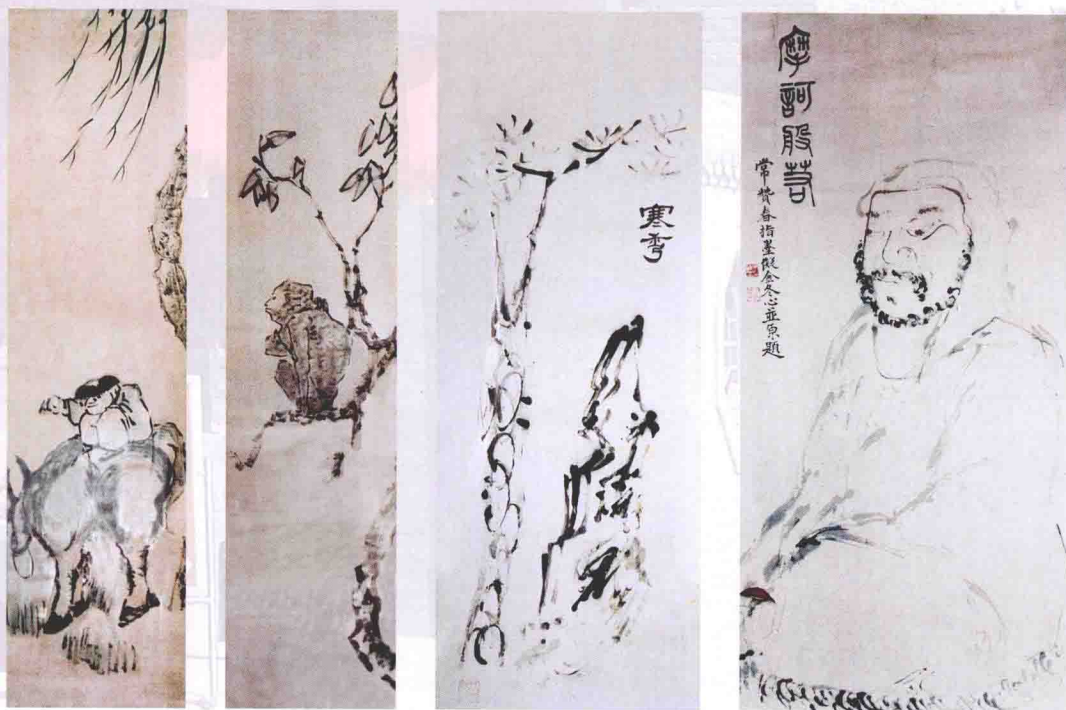 寒
摩訶般若
常贊春指墨擬金冬心並原題